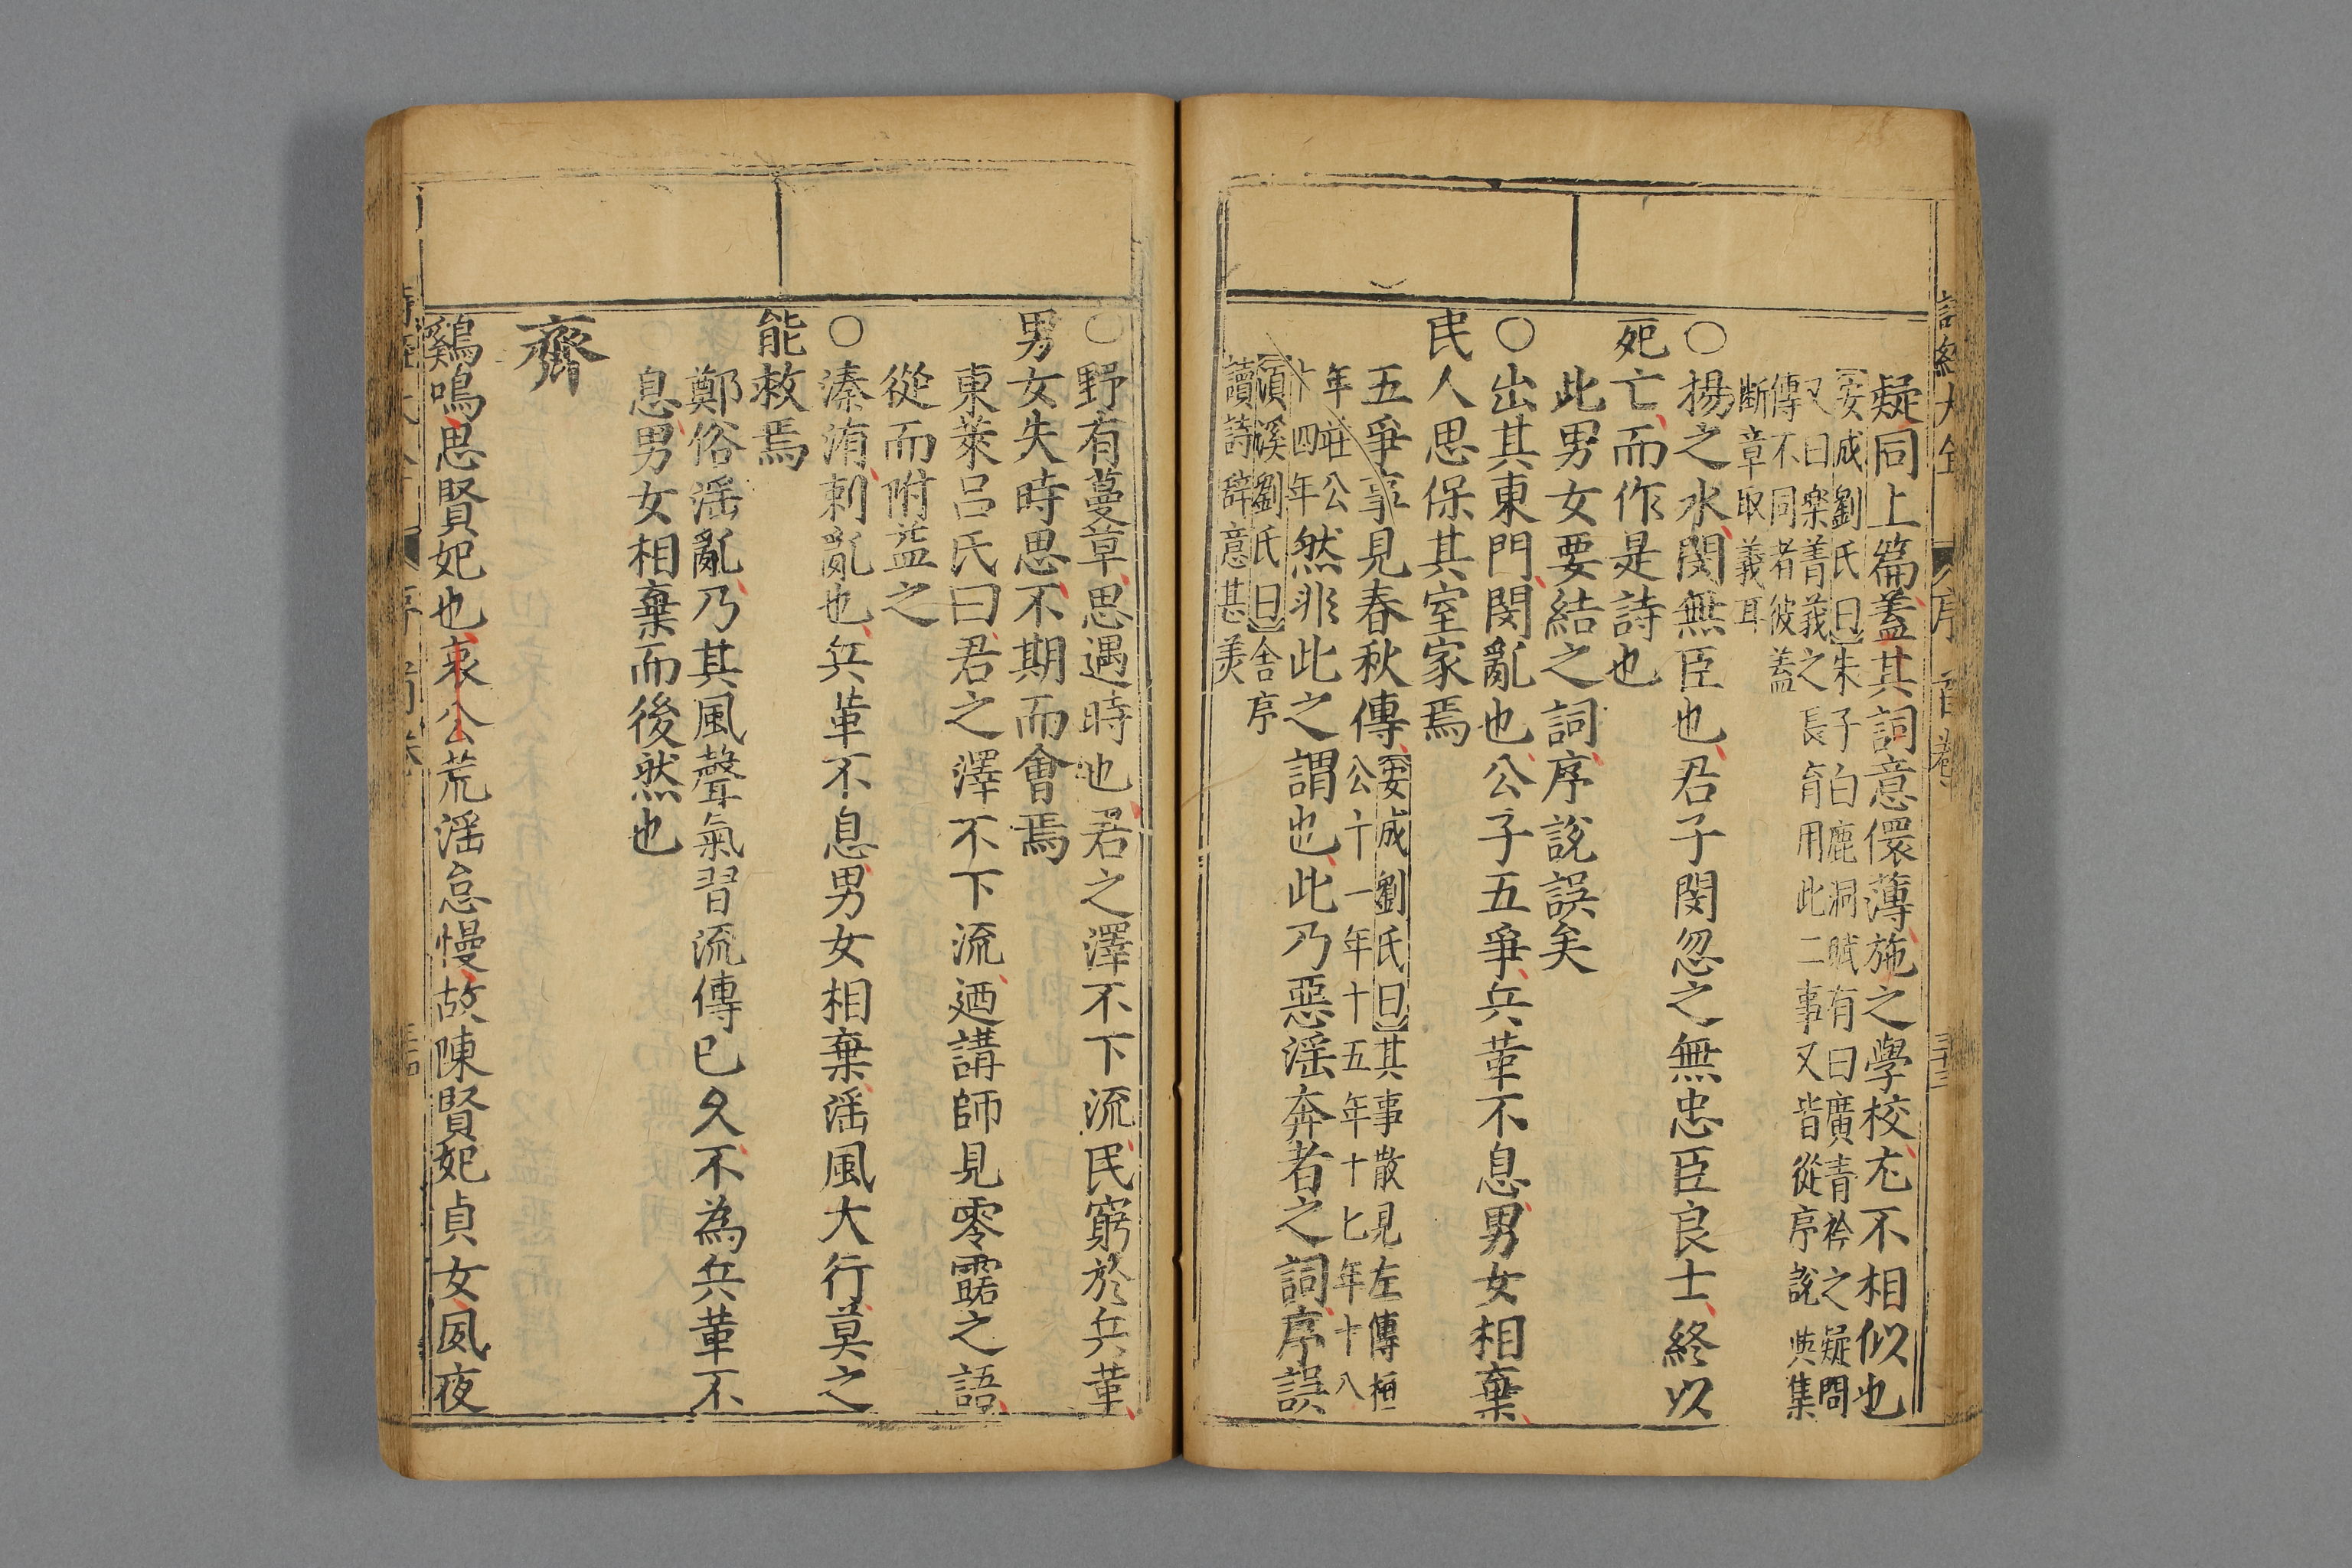 詩經大全 序 首卷 三十三
疑同上篇蓋其詞意儇薄施之學校尤不相似也
安成劉氏曰朱子白鹿洞賦有曰廣青衿之疑問
又曰樂菁莪之長育用此二事又皆從序說與集
傳不同者彼蓋
斷章取義耳
○揚之水閔無臣也君子閔忽之無忠臣良士終以
死亡而作是詩也
此男女要結之詞序說誤矣
○出其東門閔亂也公子五爭兵革不息男女相棄
民人思保其室家焉
五爭事見春秋傳
安成劉氏曰其事散見左傳桓
公十一年十五年十七年十八
年莊公
十四年
然非此之謂也此乃惡淫奔者之詞序誤
須溪劉氏曰舍序
讀詩辭意甚美
○野有蔓草思遇時也君之澤不下流民窮於兵革
男女失時思不期而會焉
東萊呂氏曰君之澤不下流迺講師見零露之語
從而附益之
○溱洧刺亂也兵革不息男女相棄淫風大行莫之
能救焉
鄭俗淫亂乃其風聲氣習流傳已久不為兵革不
息男女相棄而後然也
齊
鷄鳴思賢妃也哀公荒淫怠慢故陳賢妃貞女夙夜